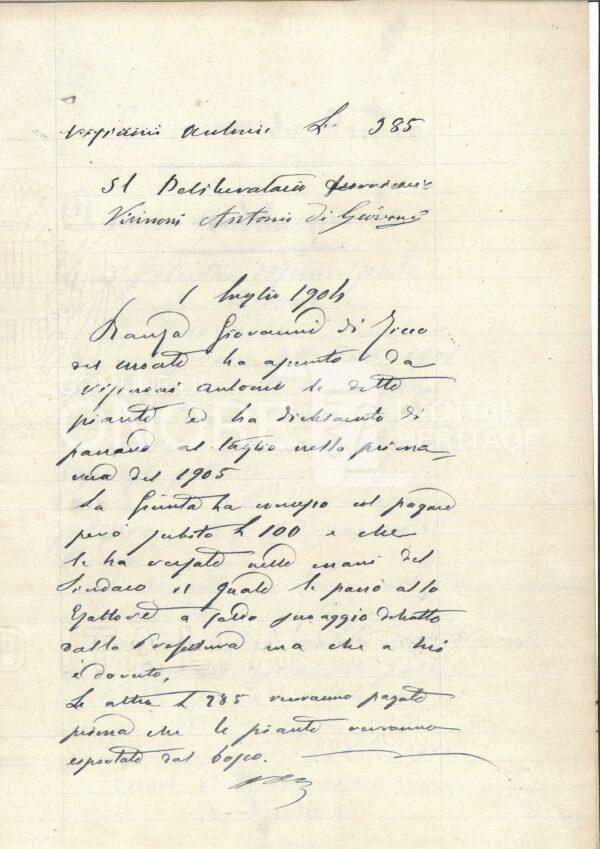 Antonio L. 385
Il Deliberatario
Antonio di
1 luglio 1904
Ranza Giovanni di
del ha assunto da
Antonio le dette
piante ed ha dichiarato di
passare al taglio nella prima=
vera del 1905
La Giunta ha concesso col pagare
però subito L 100 e che
le ha versate nelle mani del
Sindaco il quale le passò allo
Esattore a saldo
dalla Prefettura ma che a lui
è dovuto.
Le altre L 285 verranno pagate
prima che le piante verranno
esportate dal bosco.